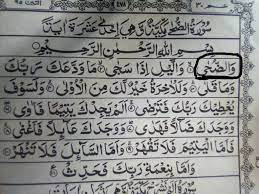 عم ٣٠ ٤٧٨ التين ٩٥
سُورَةُ الضُّحٰى مَكِّيَّةٌ وَّهِيَ اِحْدٰى عَشْرَةَ اٰيَةً
بِسْمِ اللّٰهِ الرَّحْمٰنِ الرَّحِيْمِ
وَالضُّحٰى ۝ وَالَّيْلِ اِذَا سَجٰى ۝ مَا وَدَّعَكَ رَبُّكَ
وَمَا قَلٰى ۝ وَلَلْاٰخِرَةُ خَيْرٌ لَّكَ مِنَ الْاُوْلٰى ۝ وَلَسَوْفَ
يُعْطِيْكَ رَبُّكَ فَتَرْضٰى ۝ اَلَمْ يَجِدْكَ يَتِيْمًا فَاٰوٰى ۝
وَوَجَدَكَ ضَآلًّا فَهَدٰى ۝ وَوَجَدَكَ عَآئِلًا فَاَغْنٰى ۝
فَاَمَّا الْيَتِيْمَ فَلَا تَقْهَرْ ۝ وَاَمَّا السَّآئِلَ فَلَا تَنْهَرْ ۝
وَاَمَّا بِنِعْمَةِ رَبِّكَ فَحَدِّثْ ۝